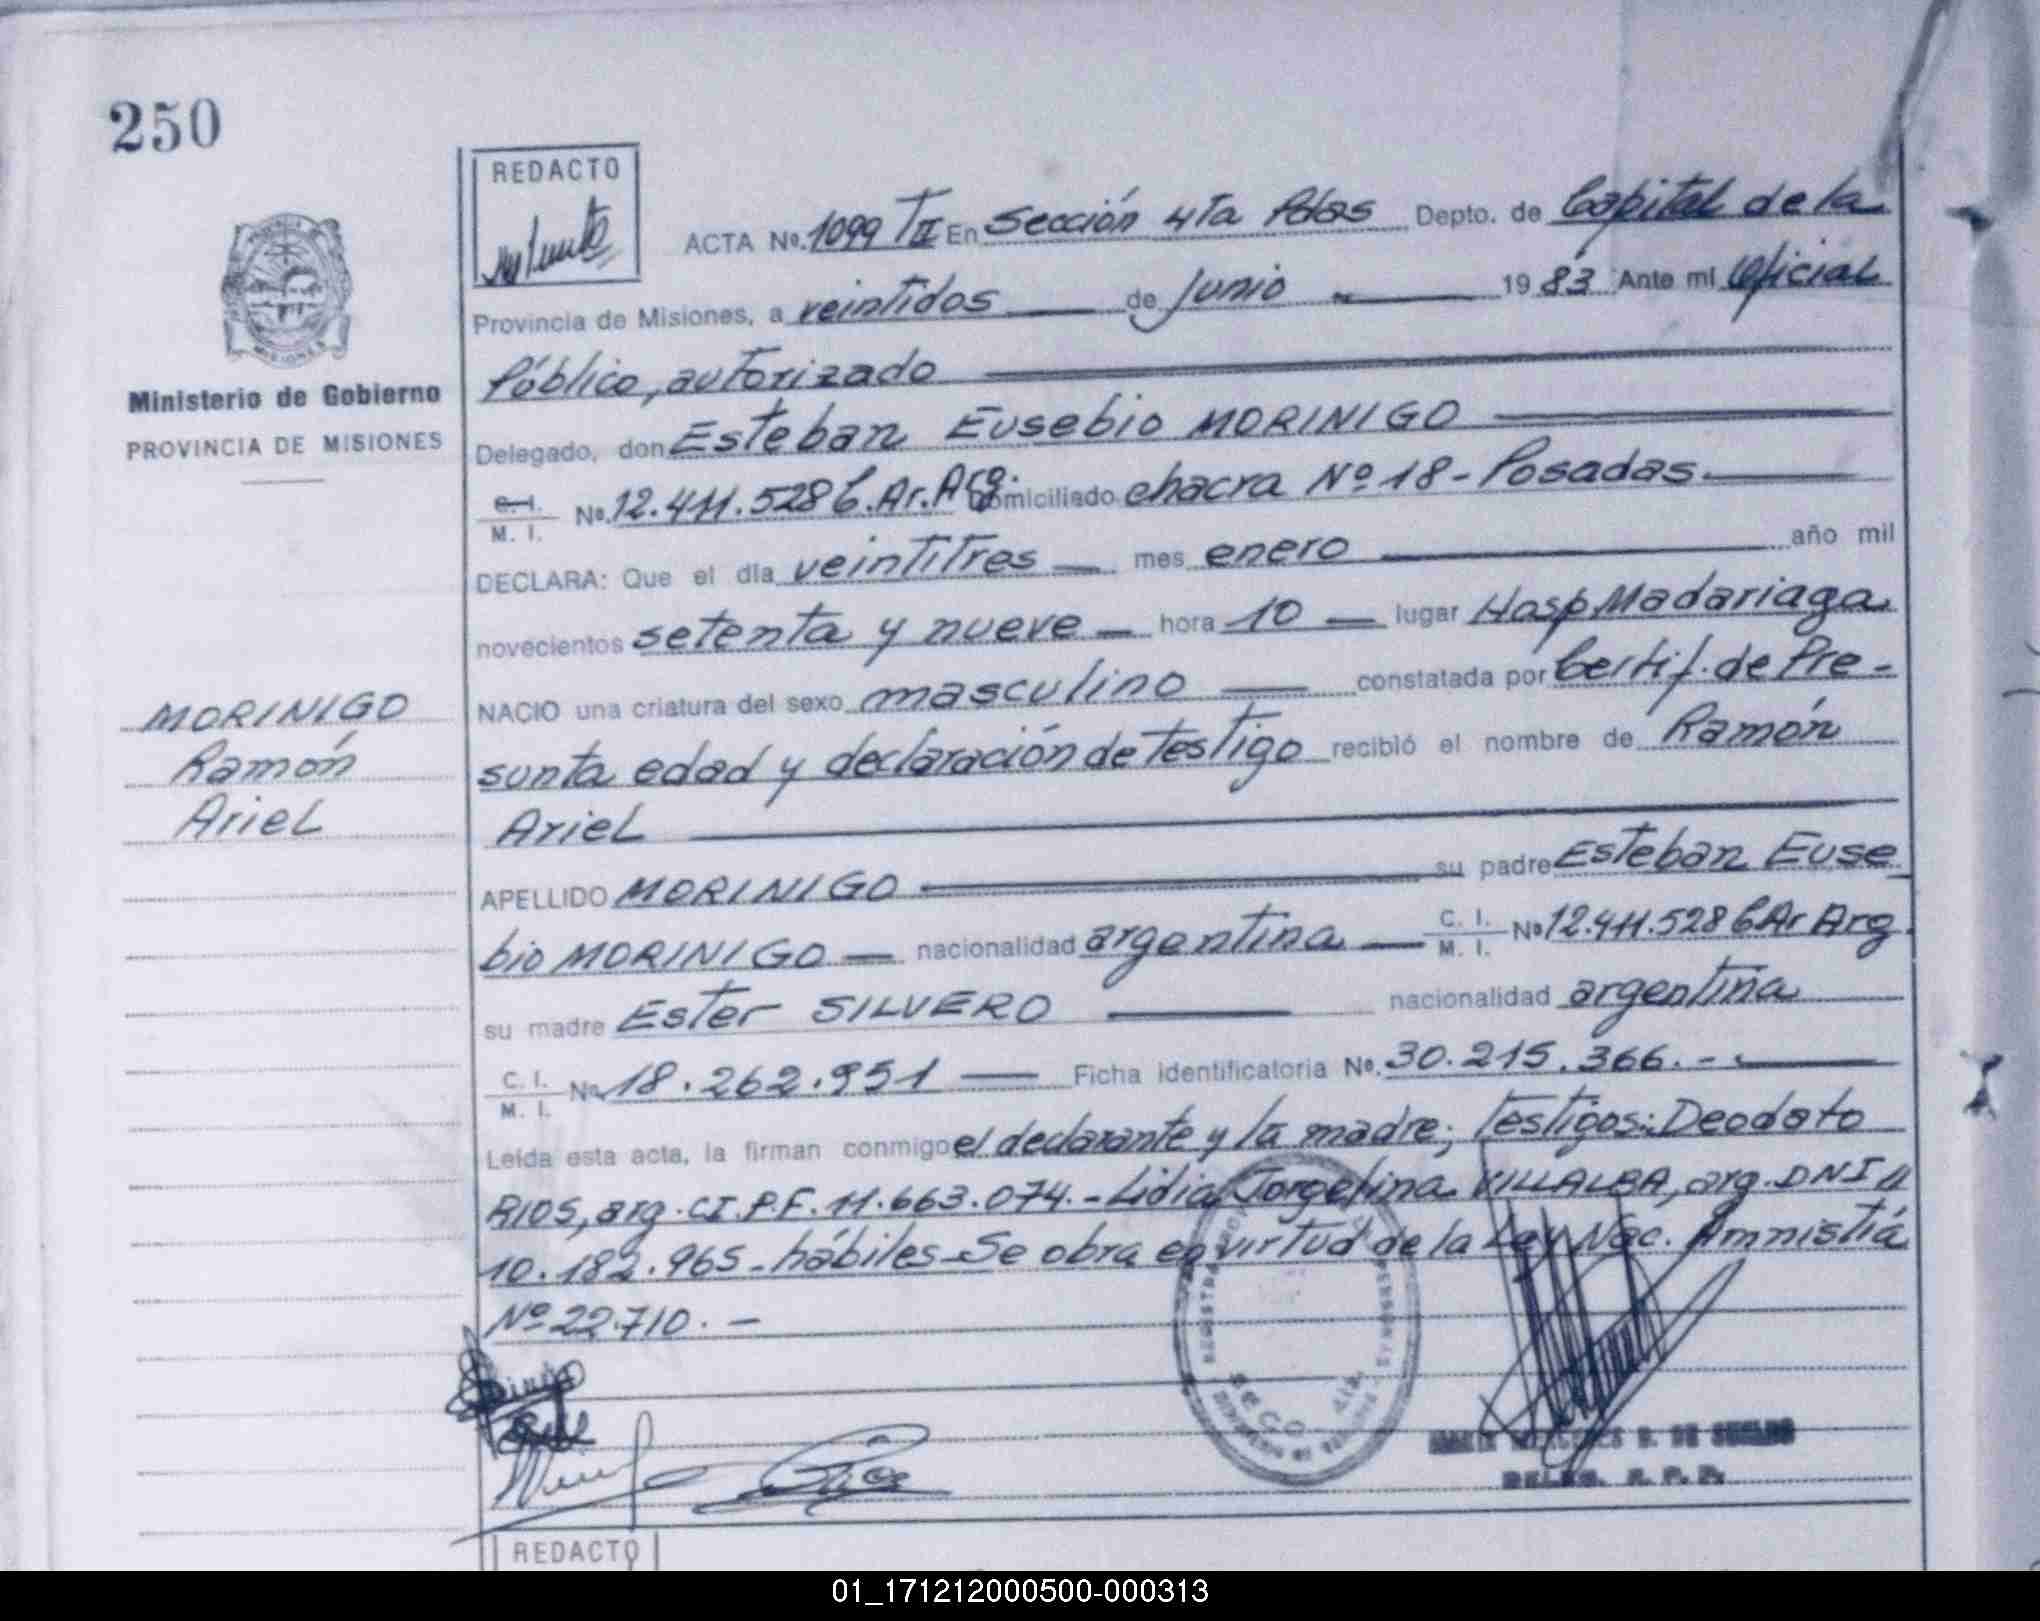 250
REDACTO
ACTA No. 1099 TII En Sección 4Ta Pdas Depto. de Capital de la
Provincia de Misiones, a veintidos de Junio 1983 Ante mi Oficial
Público, autorizado
Ministerio de Gobierno
PROVINCIA DE MISIONES
Delegado, don Esteban Eusebio MORINIGO
C. I. M. I. No. 12.411.528 C.Ar.Arg. domiciliado chacra Nº 18 - Posadas
DECLARA: Que el día veintitres mes enero año mil
novecientos setenta y nueve hora 10 lugar Hosp Madariaga
NACIO una criatura del sexo masculino constatada por Certif. de Pre-
sunta edad y declaración de testigo recibió el nombre de Ramón
Ariel
MORINIGO
Ramón
Ariel
APELLIDO MORINIGO su padre Esteban Euse
bio MORINIGO nacionalidad argentina C. I. M. I. No 12.411.528 C Ar Arg.
su madre Ester SILVERO nacionalidad argentina
C. I. M. I. No. 18.262.951 Ficha identificatoria No. 30.215.366.-
Leída esta acta, la firman conmigo el declarante y la madre; Testigos: Deodato
RIOS, arg. CI.P.F. 11.663.074.- Lidia Jorgelina VILLALBA, arg. DNI
10.182.965 - hábiles - Se obra en virtud de la Ley Nac. Amnistiá
Nº 22.710. -
DE SUELDO
DELEG. R. P. P.
REDACTO
01_171212000500-000313